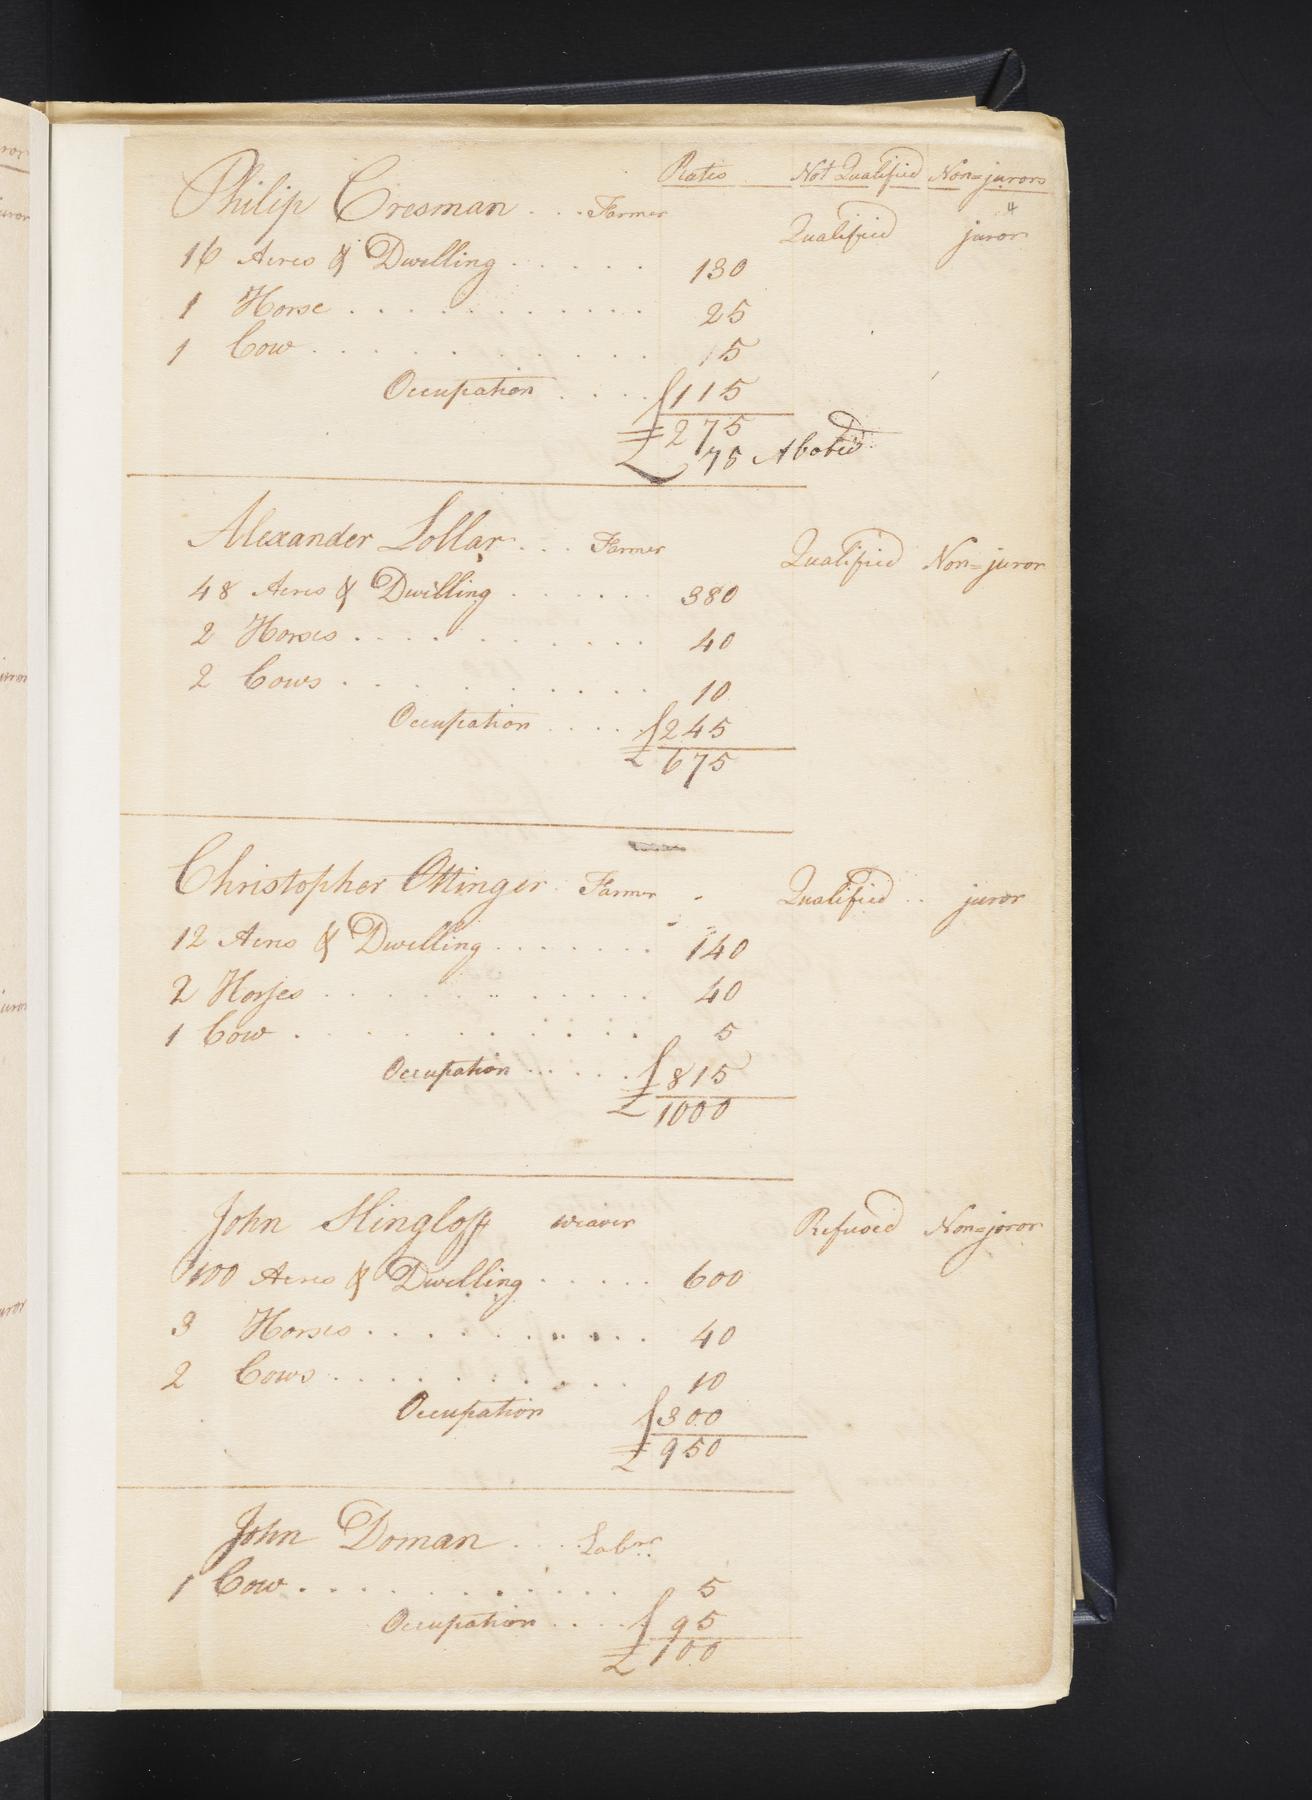 Rates Not Qualified Non=jurors
4
Philip Cresman . . . Farmer Qualified juror
16 Acres & Dwelling . . . . . . 130
1 Horse . . . . . . . . . . . 25
1 Cow . . . . . . . . . . . . 15
Occupation . . . . 115
£ 275
75 Abated
Alexander Lollar . . . Farmer Qualified Non=juror
48 Acres & Dwelling . . . . . . 380
2 Horses . . . . . . . . . . 40
2 Cows . . . . . . . . . . 10
Occupation . . . . . 245
£ 675
Christopher Ottinger Farmer Qualified . . juror
12 Acres & Dwelling . . . . . . . 140
2 Horses . . . . . . . . . . 40
1 Cow . . . . . . . . . . . 5
Occupation . . . . . 815
£ 1000
John Slingloff weaver Refused Non=joror
100 Acres & Dwelling . . . . . 600
3 Horses . . . . . . . . . . . 40
2 Cows . . . . . . . . . . 10
Occupation 300
£ 950
John Doman . . . Labrr
1 Cow . . . . . . . . . . . . 5
Occupation . . . . 95
£ 100